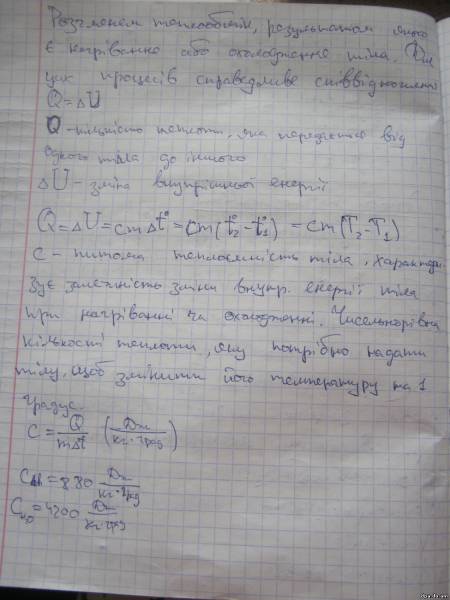 Розглянем теплообмін, результатом якого
є нагрівання або охолодження тіла. Для
цих процесів справедливе співвідношення
Q = ΔU
Q - кількість теплоти, яка передається від
одного тіла до іншого
ΔU - зміна внутрішньої енергії
Q = ΔU = cmΔt° = cm(t°₂ - t°₁) = cm(T₂ - T₁)
c - питома теплоємність тіла, характери-
зує залежність зміни внутр. енергії тіла
при нагріванні чи охолодженні. Чисельно рівна
кількості теплоти, яку потрібно надати
тілу, щоб змінити його температуру на 1
градус.
c = Q/mΔt (Дж/кг·град)
c = 880 Дж/кг·град
c = 4200 Дж/кг·град